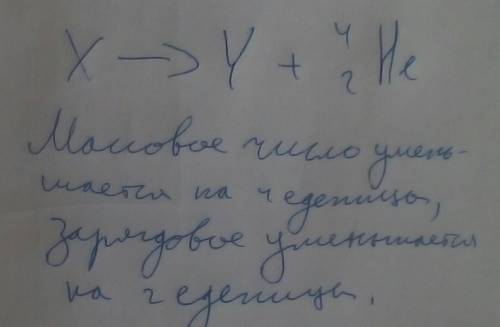 X → Y + ⁴₂He
Массовое число умень-
шается на 4 единицы,
Зарядовое уменьшается
на 2 единицы.